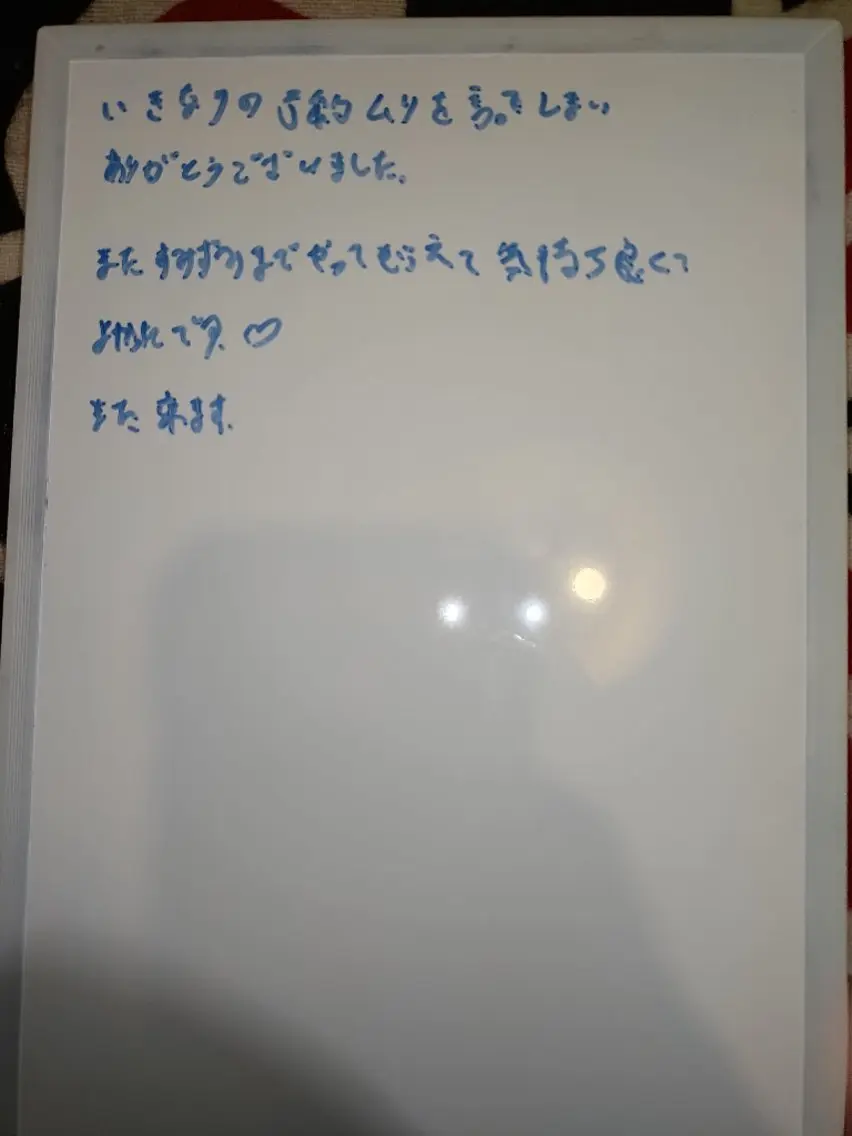 いきなりの予約ムリを言ってしまい
ありがとうございました。
また すみずみまで やってもらえて 気持ち良くて
よかったです。♡
また 来ます。